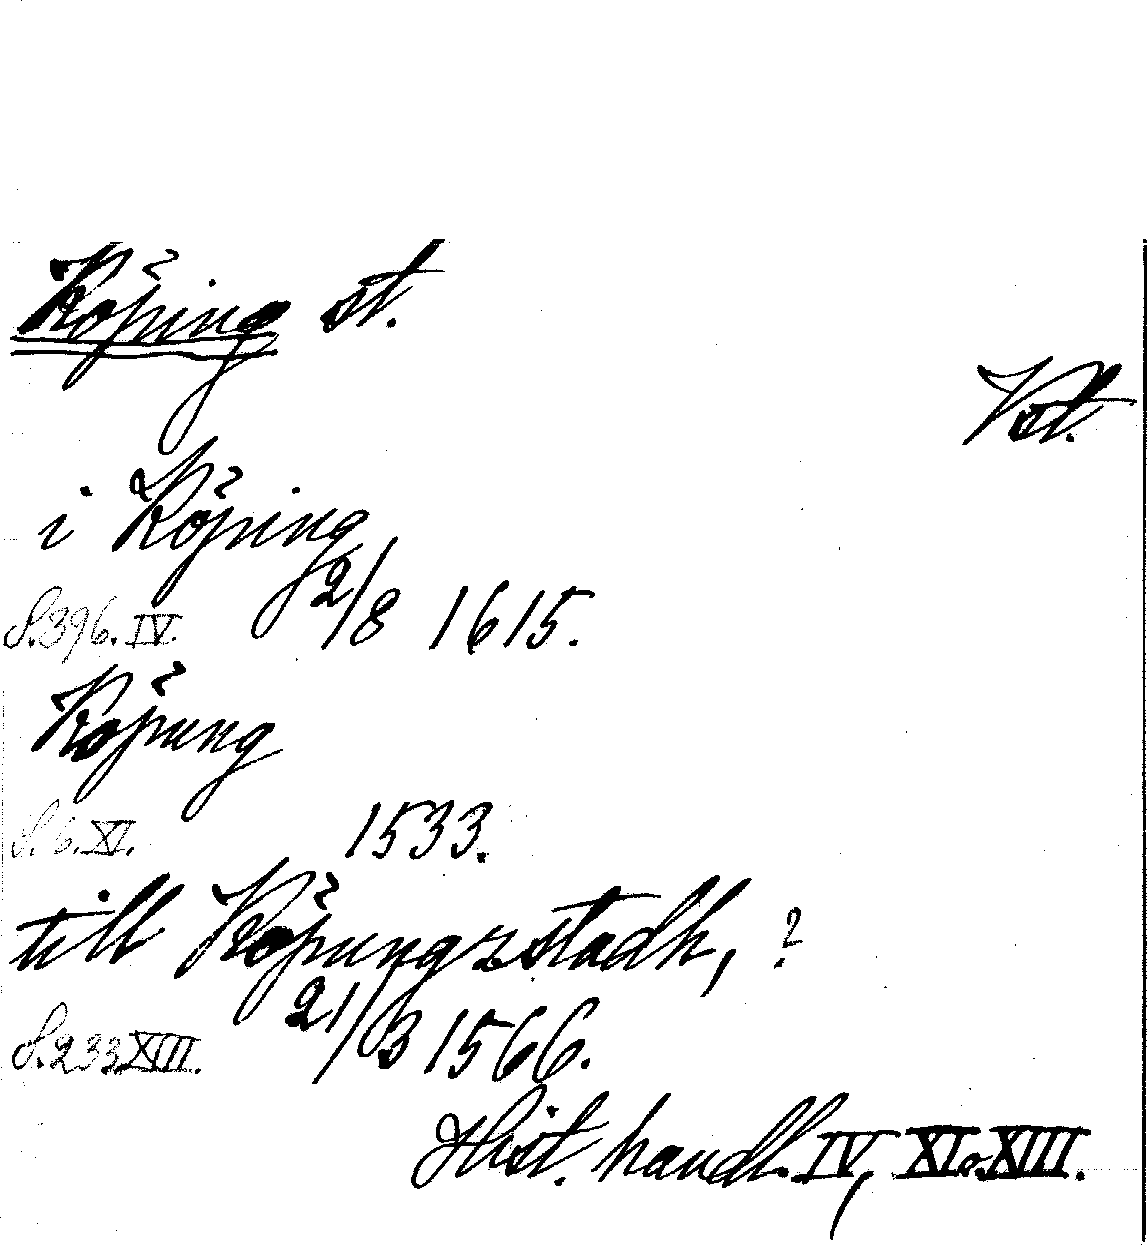 Köping st.
Vst.
i Köping
S. 396. IV. 2/8 1615.
Köpung
S. 6. XI. 1533.
till Köpungzstadh, ?
S. 233 XIII. 21/3 1566.
Hist. handl. IV, XI o. XIII.